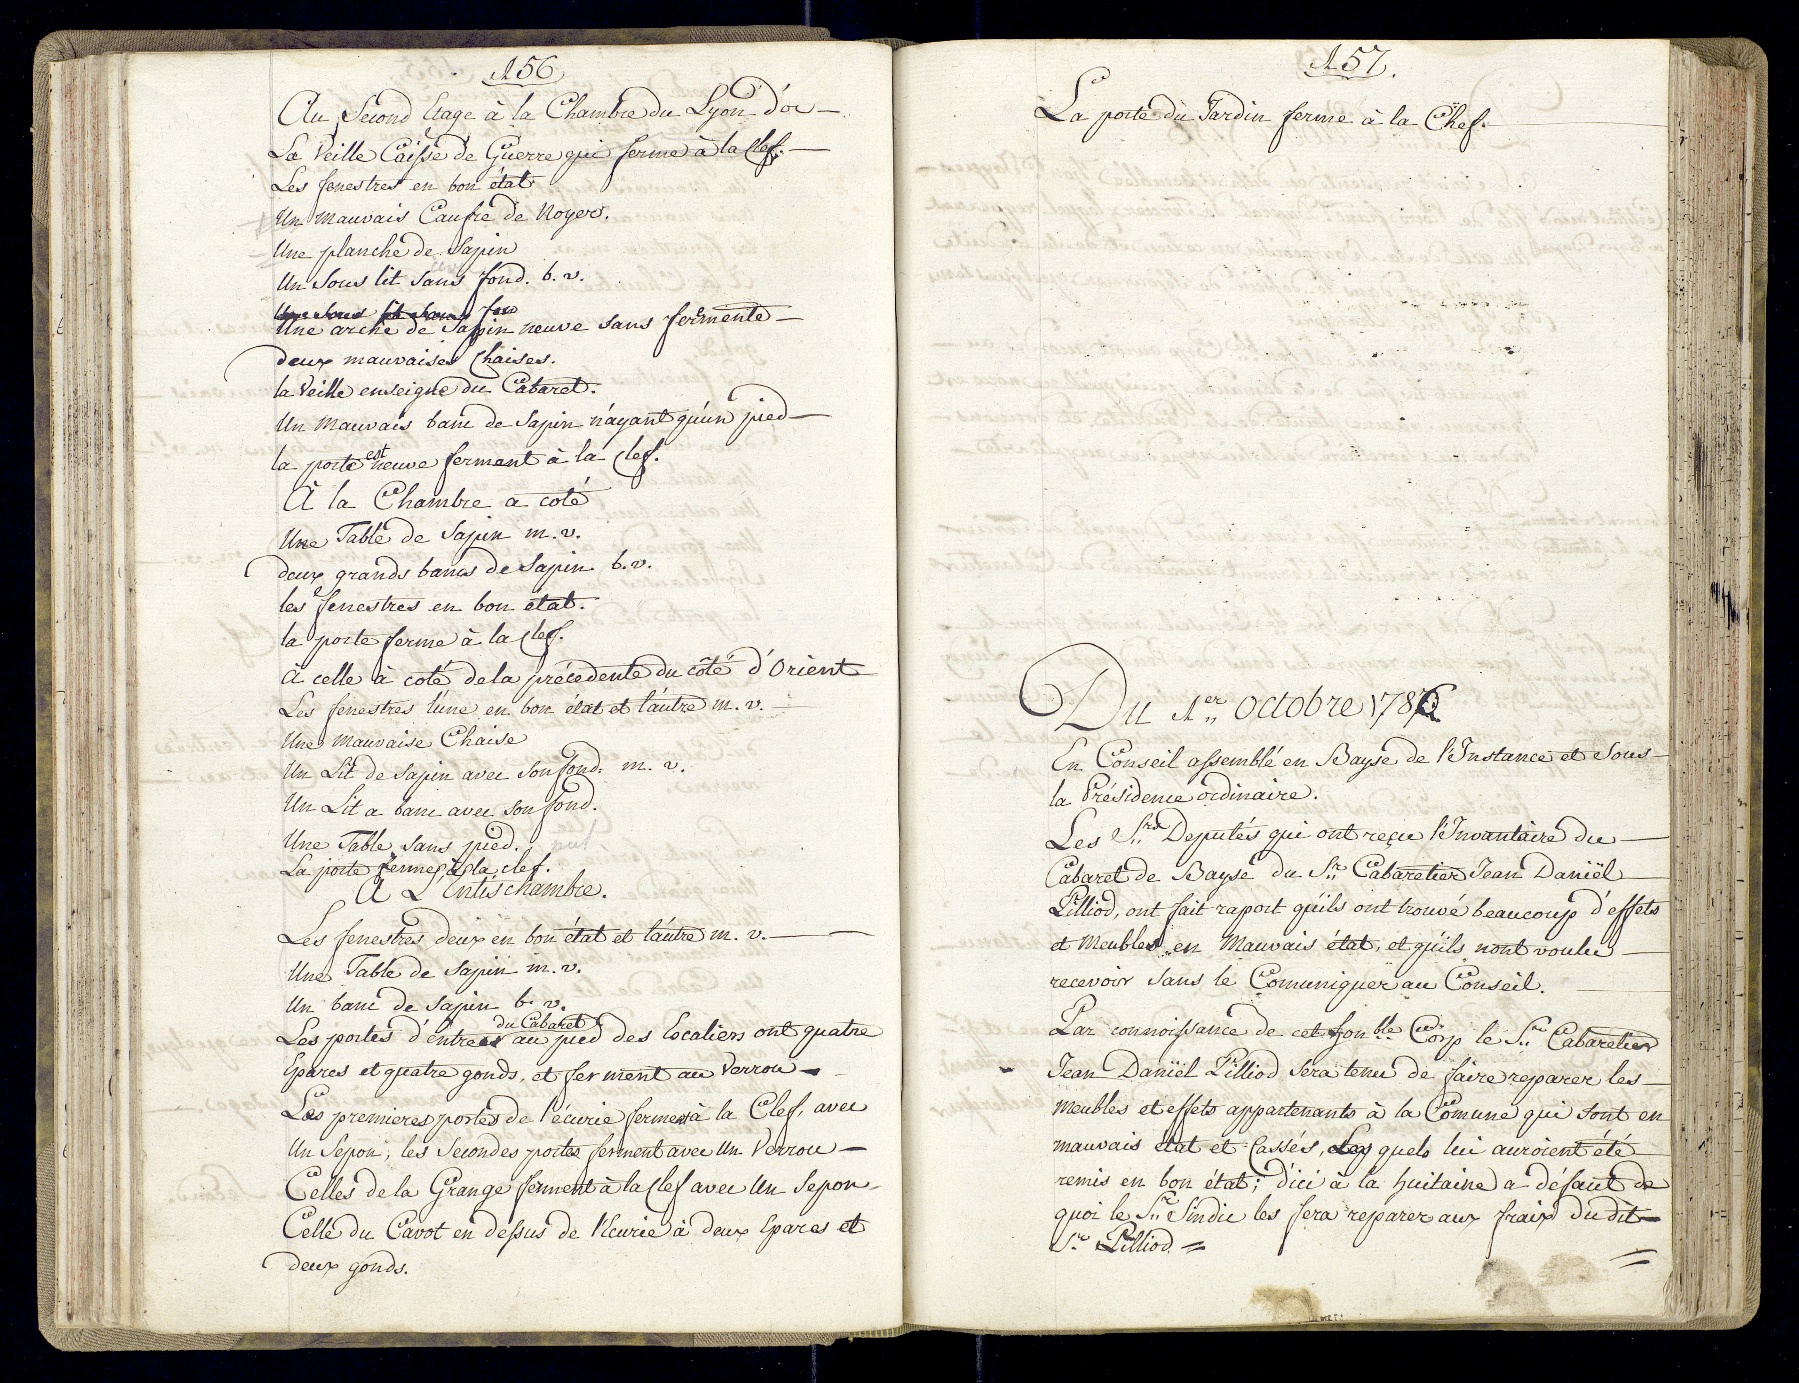 156
Au Second Etage à la Chambre du Lyon d'or —
La Veille Caisse de Guerre qui ferme à la Clef. —
Les fenestres en bon état
Un mauvais Caufre de Noyer.
Une planche de Sapin
Un Sous lit sans fond. b. v.
Une Sous lit sans fon
Une arche de Sapin neuve sans fermente —
deux mauvaises Chaises.
la Veille enseigne du Cabaret.
Un Mauvais banc de Sapin n'ayant qu'un pied —
la porte est neuve fermant à la Clef.
À la Chambre a coté
Une Table de Sapin m. v.
deux grands bancs de Sapin b. v.
les fenestres en bon etat.
la porte ferme à la Clef.
À celle à coté de la précédente du côté d'Orient
Les fenestres l'une en bon état et l'autre m. v.
Une mauvaise Chaise
Un Lit de Sapin avec son fond. m. v.
Un Lit a banc avec son fond.
Une Table sans pied.
La porte ferme à la clef.
A L'Entischambre.
Les fenestres deux en bon état et l'autre m. v. —
Une Table de Sapin m. v.
Un banc de Sapin b. v.
Les portes d'entrée du Cabaret au pied des Escaliers ont quatre
Epares et quatre gonds, et ferment au Verrou —
Les premieres portes de l'écurie ferment à la Clef, avec
Un Sepon, les Secondes portes ferment avec Un Verrou —
Celles de la Grange ferment à la Clef avec Un Sepon
Celle du Cavot en dessus de l'Ecurie à deux Epares et
deux gonds.
157.
La porte du Jardin ferme à la Chef.
Du 1er octobre 1786
En Conseil assemblé en Bayse de l'Instance et Sous
la Présidence ordinaire.
Les Srs Deputés qui ont reçu l'Invantaire du —
Cabaret de Bayse du Sr Cabaretier Jean Daniël
Pilliod, ont fait raport qu'ils ont trouvé beaucoup d'effets
et Meubles en Mauvais état, et qu'ils nont voulu —
recevoir sans le Comuniquer au Conseil.
Par connoissance de cet honble Corp le Sr Cabaretier
Jean Daniël Pilliod Sera tenu de faire reparer les —
meubles et effets appartenants à la Comune qui sont en
mauvais etat et Cassés, Les quels lui auroient été
remis en bon état; d'ici à la huitaine a défaut de
quoi le Sr Sindic les fera reparer aux fraix du dit —
Sr Pilliod =